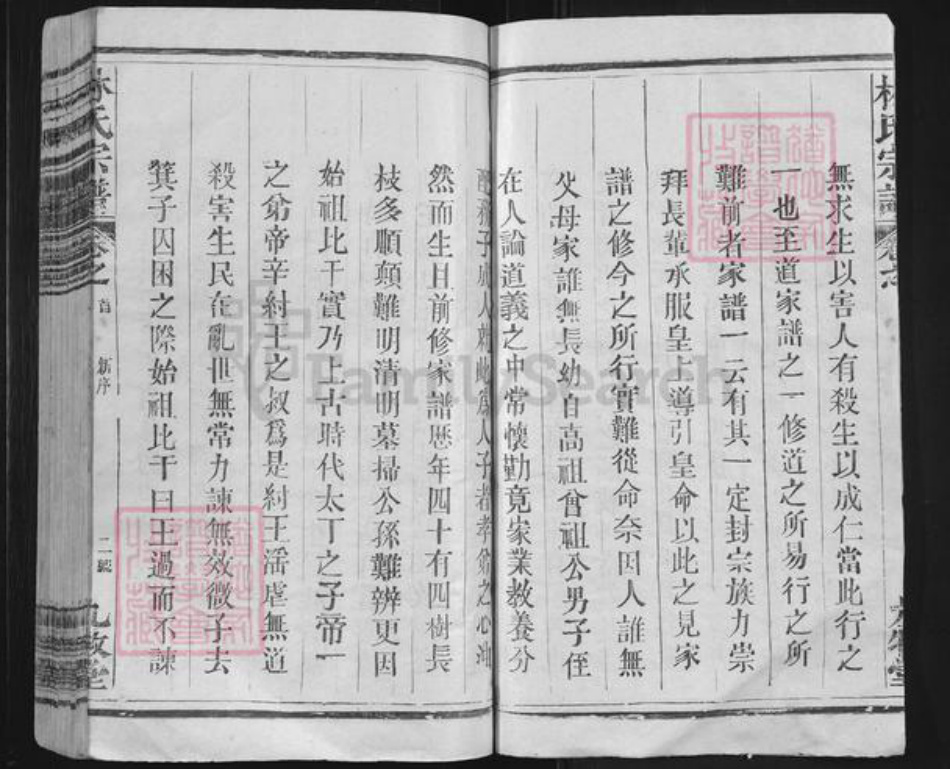 無求生以害人有殺生以成仁當此行之
一也至道家譜之一修道之所易行之所
難前者家譜一云有其一定封宗族力崇
拜長輩承服皇上導引皇命以此之見家
譜之修今之所行實難從命奈因人誰無
父母家誰無長幼自高祖曾祖公男子侄
在人論道義之中常懷勤竟家業教養分
子成人 此為人子者孝 之心
然而生且前修家譜歷年四十有四樹長
枝多順顛難明清明墓掃公孫難辨更因
始祖比干實乃上古時代太丁之子帝一
之弟帝辛紂王之叔為是紂王淫虐無道
殺害生民在亂世無常力諫無效微子去
箕子囚困之際始祖比干曰王過而不諫
林氏宗譜
卷之首
新序
二號
九牧堂
FamilySearch